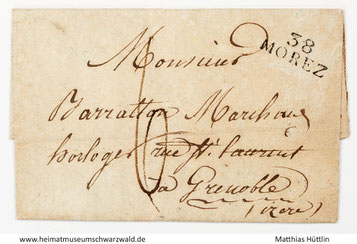 38
MOREZ
Monsieur
Barratton Marchand
horloger rue St. laurent
à Grenoble
(izere)
www.heimatmuseumschwarzwald.de
Matthias Hüttlin